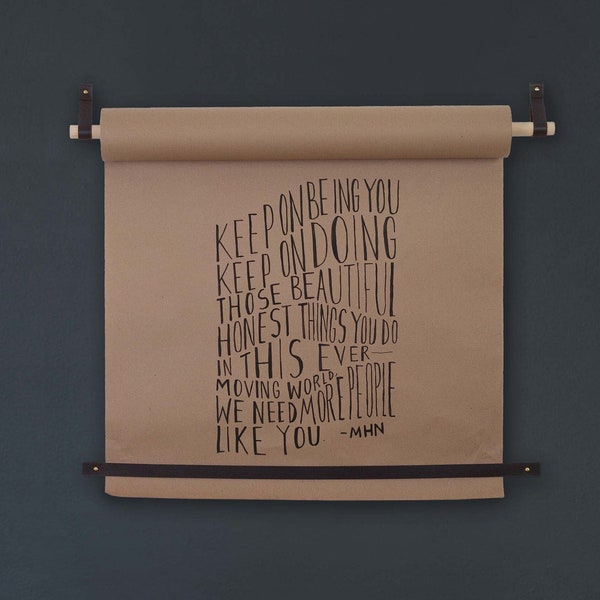 KEEP ON BEING YOU
KEEP ON DOING
THOSE BEAUTIFUL
HONEST THINGS YOU DO
IN THIS EVER—
MOVING WORLD,
WE NEED MORE PEOPLE
LIKE YOU -MHN